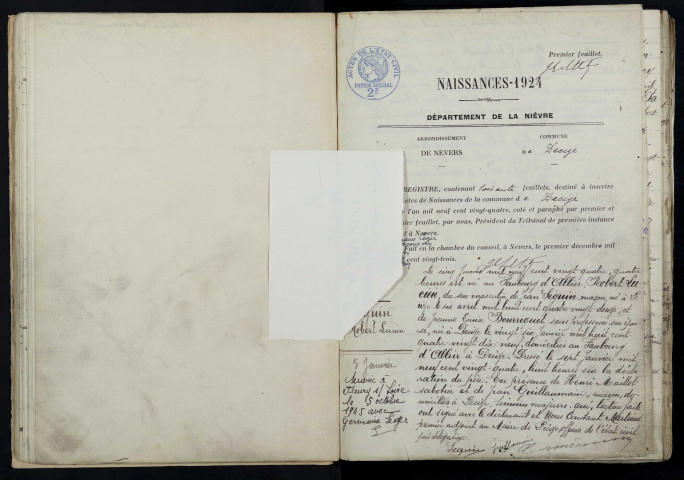 Premier feuillet.
ACTES DE L'ÉTAT CIVIL
PAPIER SPECIAL
2F
NAISSANCES-1924
DÉPARTEMENT DE LA NIÈVRE
ARRONDISSEMENT
COMMUNE
DE NEVERS
De Decize
REGISTRE, contenant soixante feuillets, destiné à inscrire
actes de Naissances de la commune de Decize
l'an mil neuf cent vingt-quatre, coté et paraphé par premier et
feuillet, par nous, Président du Tribunal de première instance
à Nevers.
Fait en la chambre du conseil, à Nevers, le premier décembre mil
cent vingt-trois.
Le cinq janvier mil neuf cent vingt quatre, quatre
heures est né au Faubourg d'Allier, Robert Lu
cien, du sexe masculin de Jean Séguin, maçon, né à De
cize le six avril mil huit cent quatre vingt douze, et
de Jeanne Bourriquet sans profession son épou
se, née à Decize le vingt janvier mil huit cent
quatre vingt dix neuf, domiciliés au Faubourg
d'Allier à Decize. Dressé le sept janvier mil
neuf cent vingt-quatre, huit heures sur la décla
ration du père. En présence de Henri Maillot
sabotier et de Jean Guillaumain, maçon, do
miciliés à Decize, témoins majeurs, qui, lecture faite
ont signé avec le déclarant et Nous
premier adjoint au Maire de Decize officier de l'état civil
par délégation.
Seguin
Séguin
Robert Lucien
5 Janvier
Marié à
s/ Loire
le 15 octobre
1945 avec
Germaine Léger